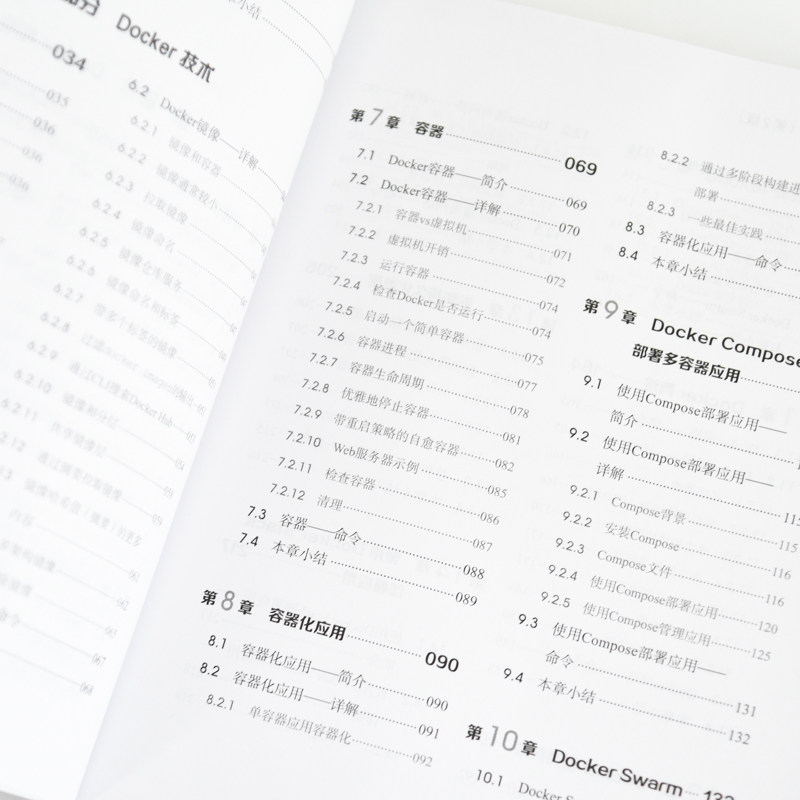 Docker 技术
034
035
036
036
6.2 Docker镜像——详解
6.2.1 镜像和容器
6.2.2 镜像通常较小
6.2.3 拉取镜像
6.2.4 镜像命名
6.2.5 镜像仓库服务
6.2.6 镜像命名和标签
6.2.7
6.2.8
6.2.9 通过CLI搜索Docker Hub
6.2.10 镜像和分层
6.2.11 共享镜像层
第7章 容器 069
7.1 Docker容器——简介 069
7.2 Docker容器——详解 070
7.2.1 容器vs虚拟机 071
7.2.2 虚拟机开销 072
7.2.3 运行容器 074
7.2.4 检查Docker是否运行 074
7.2.5 启动一个简单容器 075
7.2.6 容器进程 077
7.2.7 容器生命周期 078
7.2.8 优雅地停止容器 081
7.2.9 带重启策略的自愈容器 082
7.2.10 Web服务器示例 085
7.2.11 检查容器 086
7.2.12 清理 087
7.3 容器——命令 088
7.4 本章小结 089
第8章 容器化应用 090
8.1 容器化应用——简介 090
8.2 容器化应用——详解 091
8.2.1 单容器应用容器化 092
8.2.2 通过多阶段构建进
部署
8.2.3 一些最佳实践
8.3 容器化应用——命令
8.4 本章小结
第9章 Docker Compose
部署多容器应用
9.1 使用Compose部署应用——
简介
9.2 使用Compose部署应用——
详解 115
9.2.1 Compose背景 115
9.2.2 安装Compose 116
9.2.3 Compose文件 116
9.2.4 使用Compose部署应用 120
9.2.5 使用Compose管理应用 125
9.3 使用Compose部署应用——
命令 131
9.4 本章小结 132
第10章 Docker Swarm
10.1